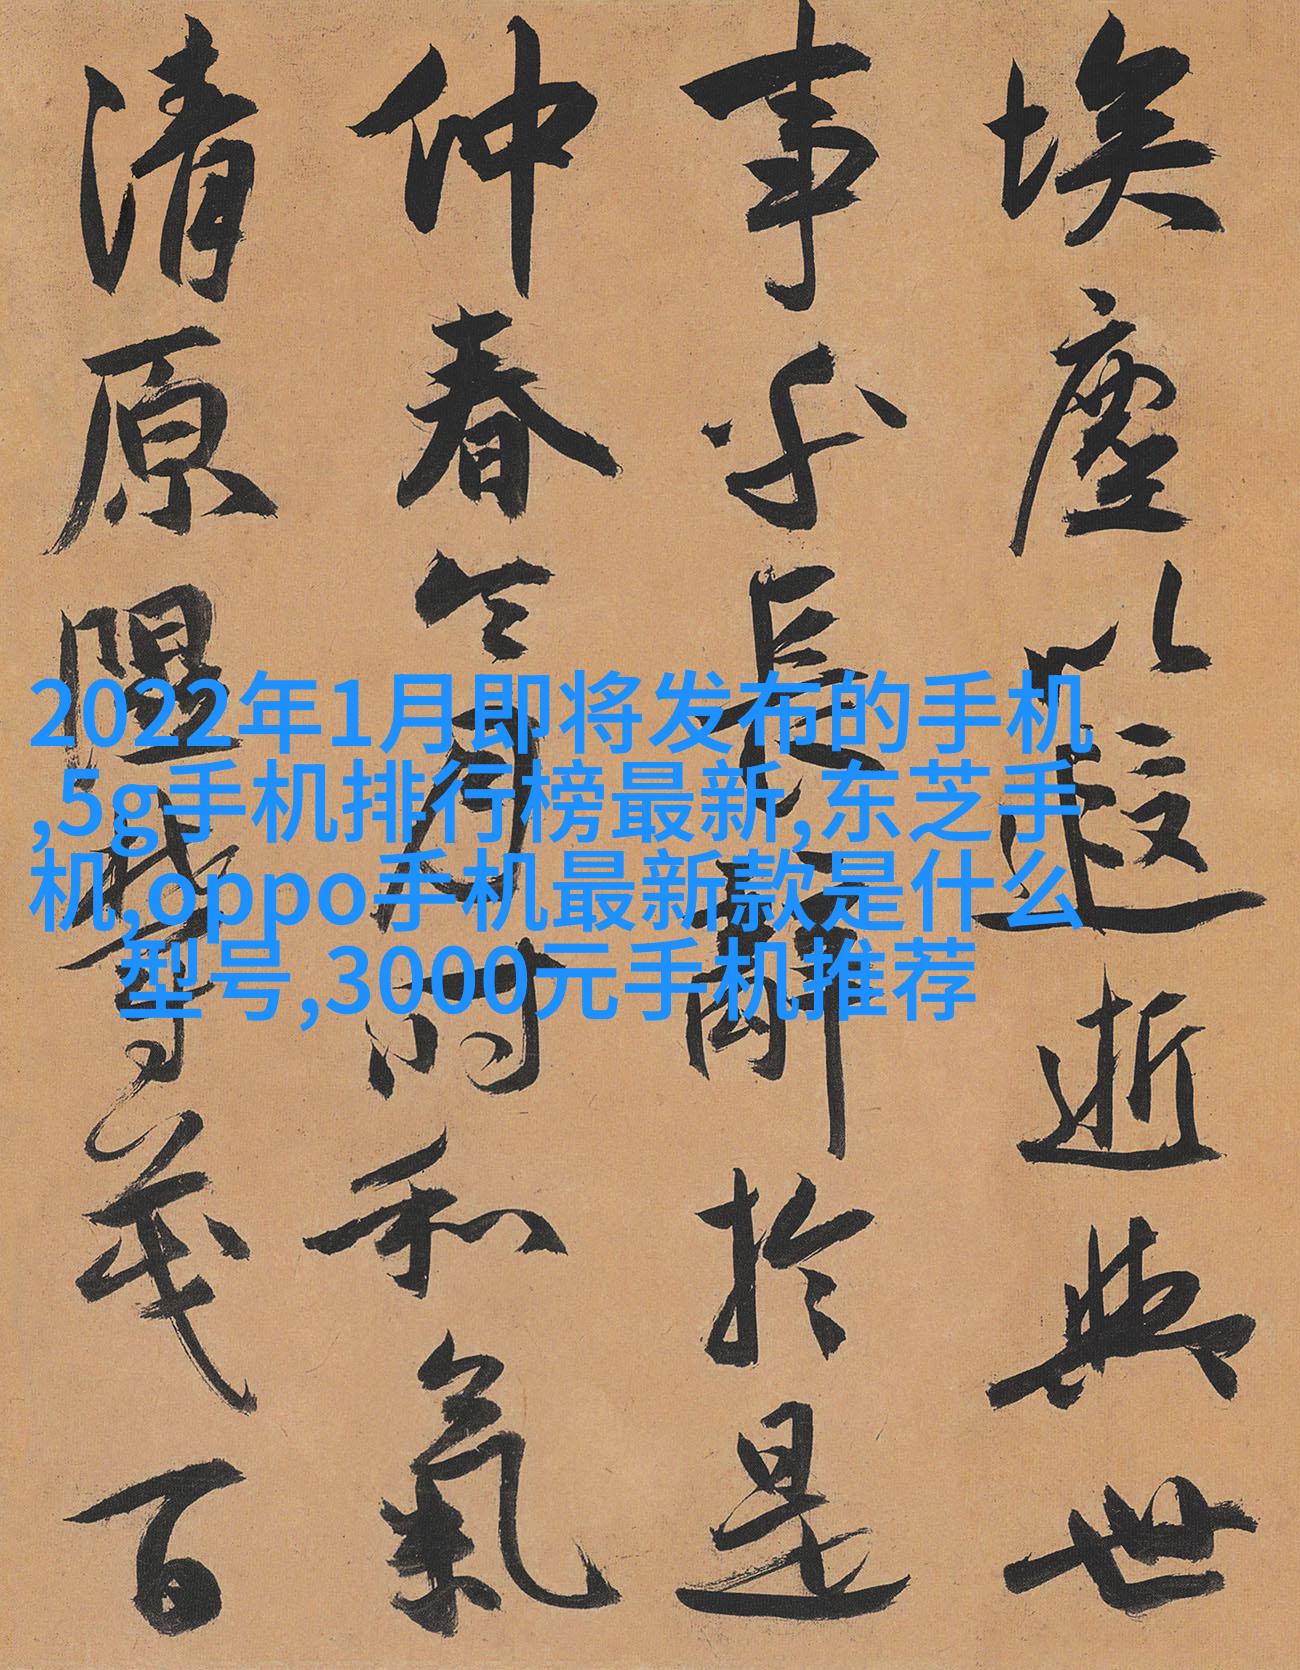 埃塵以遐逝與世
事乎長辭於是
仲春令月時和氣
清原隰鬱茂百
2022年1月即将发布的手机
,5g手机排行榜最新,东芝手
机,oppo手机最新款是什么
型号,3000元手机推荐